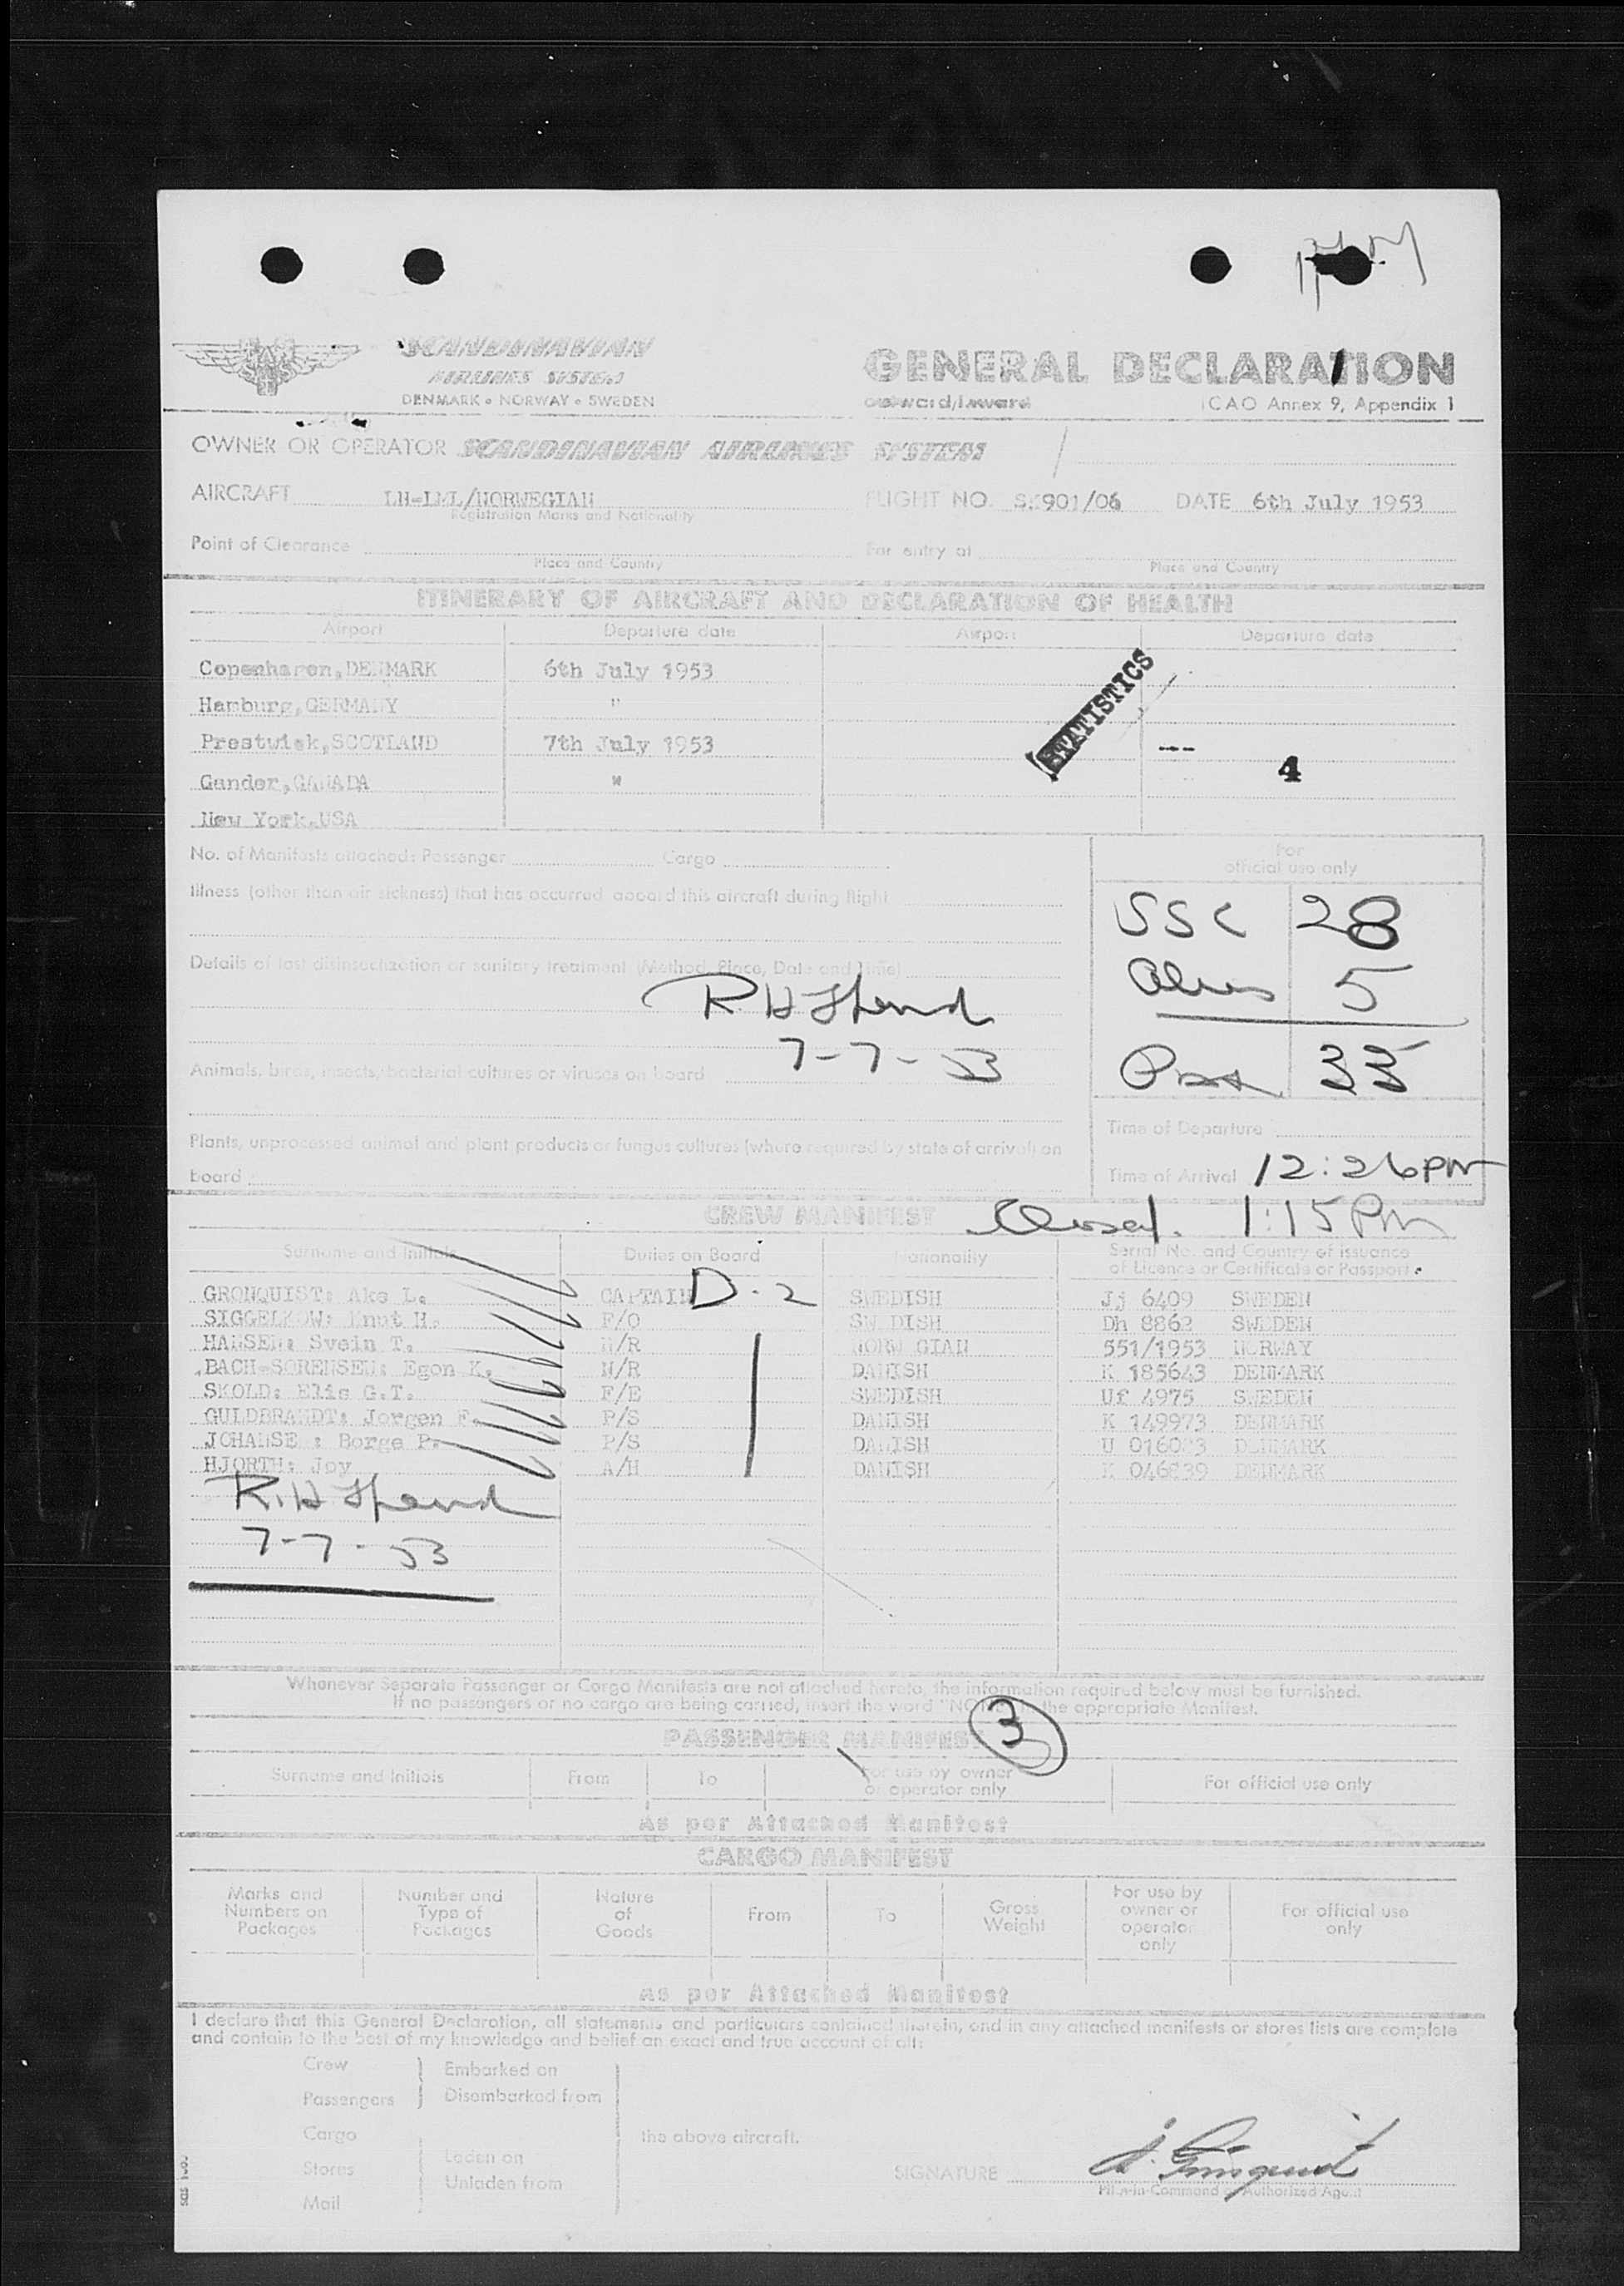 SCANDINAVIAN
AIRLINES SYSTEM
DENMARK • NORWAY • SWEDEN
GENERAL DECLARATION
outward/inward
ICAO Annex 9, Appendix 1
OWNER OR OPERATOR SCANDINAVIAN AIRLINES SYSTEM
AIRCRAFT LN-LML/NORWEGIAN FLIGHT NO. SK901/06 DATE 6th July 1953
Registration Marks and Nationality
Point of Clearance For entry at
Place and Country Place and Country
ITINERARY OF AIRCRAFT AND DECLARATION OF HEALTH
Airport Departure date Airport Departure date
Copenhagen,DENMARK 6th July 1953
Hamburg,GERMANY "
Prestwick,SCOTLAND 7th July 1953
Gander,CANADA "
New York,USA
STATISTICS
4
No. of Manifests attached: Passenger Cargo
For
official use only
Illness (other than air sickness) that has occurred aboard this aircraft during flight
SSC 28
Aliens 5
Details of last disinsectization or sanitary treatment (Method, Place, Date and Time)
7-7-53
Pax 33
Animals, birds, insects, bacterial cultures or viruses on board
Time of Departure
Plants, unprocessed animal and plant products or fungus cultures (where required by state of arrival) on
board
Time of Arrival 12:26 PM
Closed. 1:15 PM
CREW MANIFEST
Surname and Initials Duties on Board Nationality Serial No. and Country of issuance
of Licence or Certificate or Passport.
D-2
GRONQUIST: Ake L. CAPTAIN SWEDISH Jj 6409 SWEDEN
SIGGELKOW: Knut H. F/O SWEDISH Dh 8862 SWEDEN
HANSEN: Svein T. N/R NORWEGIAN 551/1953 NORWAY
BACH-SORENSEN: Egon K. N/R DANISH K 185643 DENMARK
SKOLD: Elis G.T. F/E SWEDISH Uf 4975 SWEDEN
GULDBRANDT: Jorgen F. P/S DANISH K 149973 DENMARK
JOHANSE : Borge P. P/S DANISH U 016023 DENMARK
HJORTH: Joy A/H DANISH K 046839 DENMARK
7-7-53
Whenever Separate Passenger or Cargo Manifests are not attached hereto, the information required below must be furnished.
If no passengers or no cargo are being carried, insert the word "NONE" in the appropriate Manifest.
3
PASSENGER MANIFEST
Surname and Initials From To For use by owner
or operator only For official use only
As per Attached Manifest
CARGO MANIFEST
Marks and
Numbers on
Packages
Number and
Type of
Packages
Nature
of
Goods
From
To
Gross
Weight
For use by
owner or
operator
only
For official use
only
As per Attached Manifest
I declare that this General Declaration, all statements and particulars contained therein, and in any attached manifests or stores lists are complete
and contain to the best of my knowledge and belief an exact and true account of all:
Crew
Passengers
Embarked on
Disembarked from
Cargo
Stores
Mail
Laden on
Unladen from
the above aircraft.
SIGNATURE
Pilot-in-Command or Authorized Agent